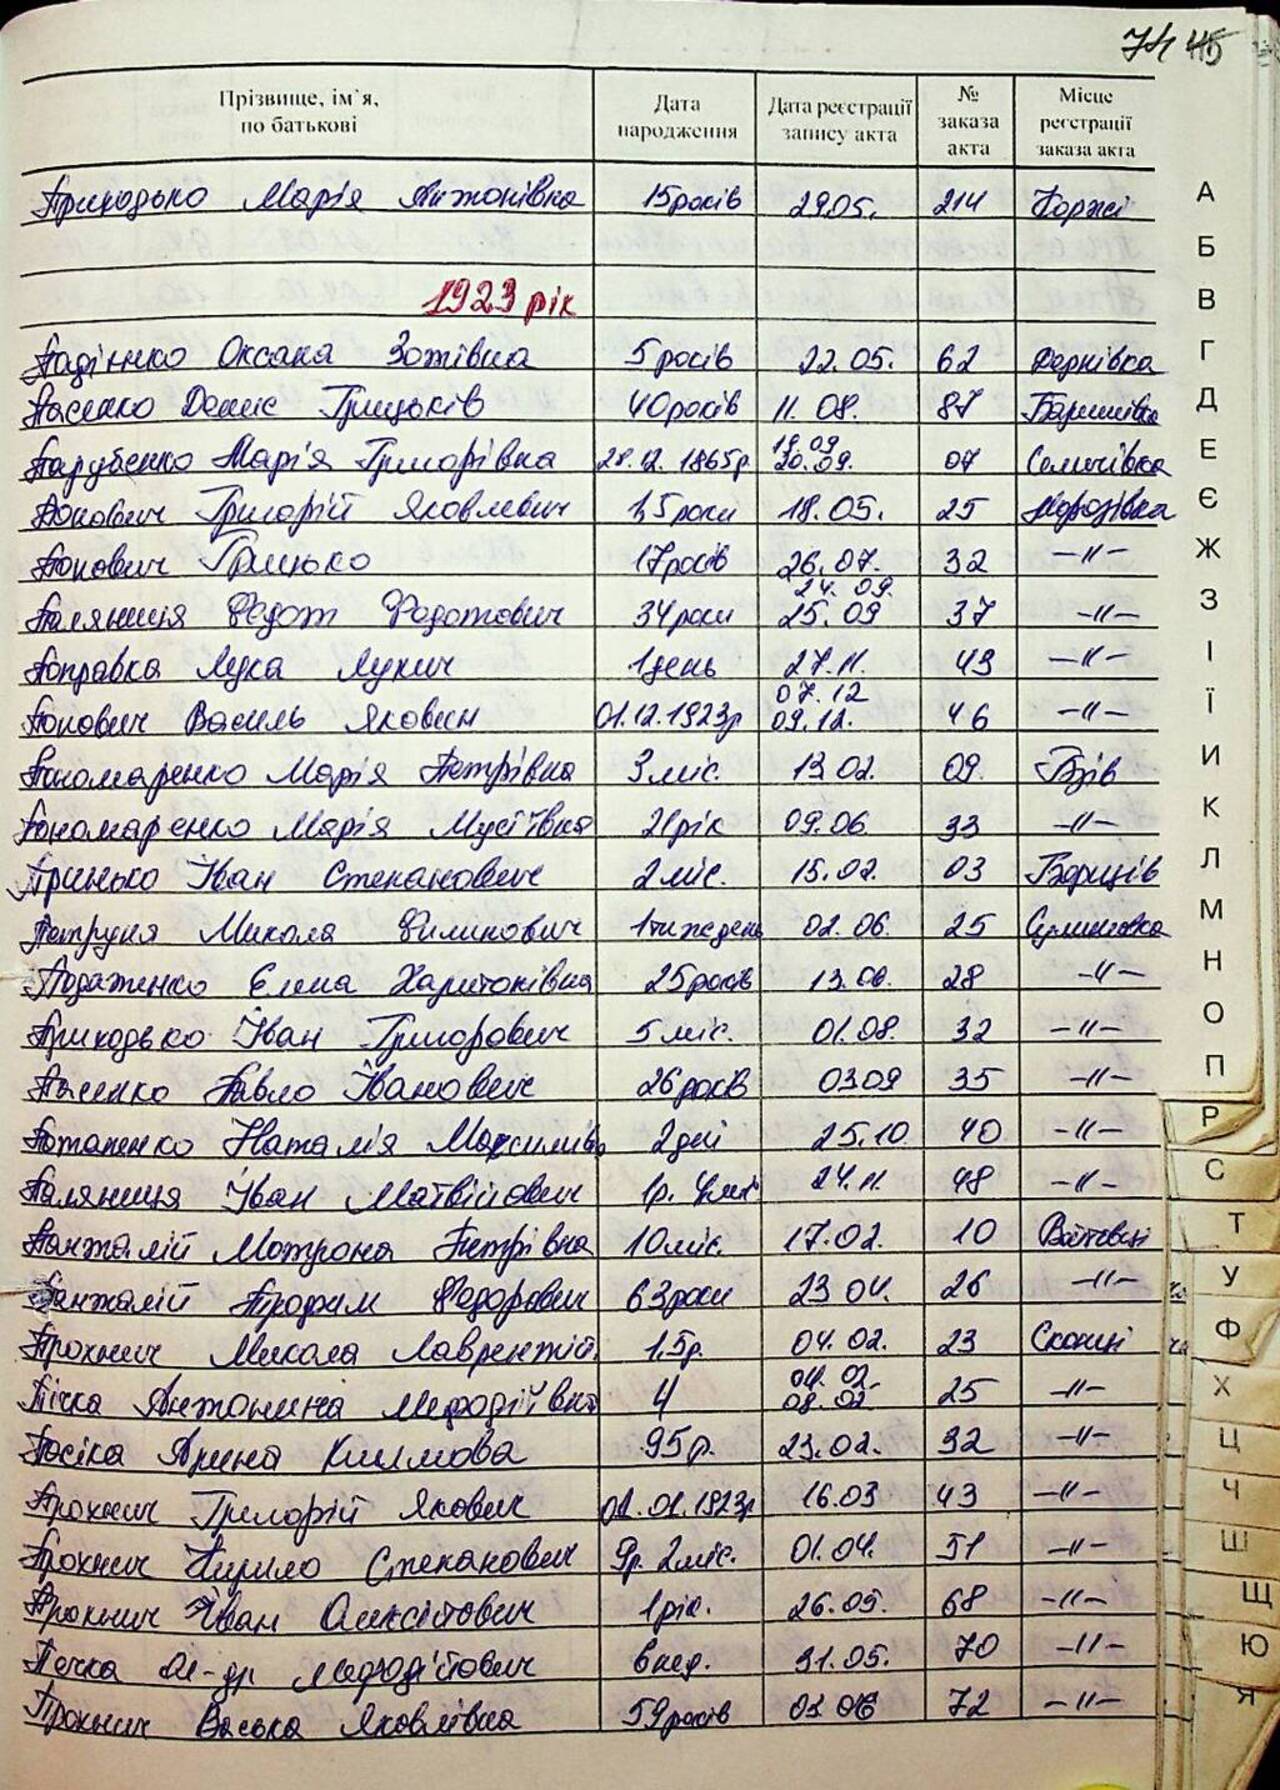 74 45
Прізвище, ім`я, по батькові Дата народження Дата реєстрації запису акта № заказа акта Місце реєстрації заказа акта
Приходько Марія Антонівна 15 років 29.05. 214 Коржі
1923 рік
Оксана Зотівна 5 років 22.05. 62 Дернівка
Пасенко Денис Грицьків 40 років 11.08. 87 Баришівка
Парубенко Марія Григорівна 28.12.1865р 19.09. 20.09. 07 Селичівка
Попович Григорій Яковлевич 1,5 роки 18.05. 25 Морозівка
Попович Грицько 17 років 26.07. 32 -"-
Паляниця Федот Федотович 34 роки 24.09. 25.09 37 -"-
Поправка Лука Лукич 1 день 27.11. 43 -"-
Попович Василь Якович 01.12.1923р 07.12 09.12. 46 -"-
Пономаренко Марія Петрівна 3 міс. 13.02. 09. Бзів
Пономаренко Марія Мусіївна 21 рік 09.06. 33 -"-
Принько Іван Степанович 2 міс. 15.02. 03 Борщів
Петруня Микола Филипович 1 тиждень 02.06. 25 Сулимівка
Подаженко Елена Харитонівна 25 років 13.06. 28 -"-
Приходько Іван Григорович 5 міс. 01.08. 32 -"-
Пасенко Павло Іванович 26 років 03.09 35 -"-
Потапенко Наталія 2 дні 25.10. 40 -"-
Паляниця Іван Матвійович 1р. 24.11. 48 -"-
Панталій Мотрона Петрівна 10 міс. 17.02. 10 Войтівці
Панталій Трофим Федорович 63 роки 23.04. 26 -"-
Прохнич Микола Лаврентій. 1,5р. 04.02. 23 Скопці
Пічка Антонина Мефодіївна 4 04.02. 08.02. 25 -"-
Посіка Арина Климова 95 р. 23.02. 32 -"-
Прохнич Григорій Якович 01.01.1923р 16.03 43 -"-
Прохнич Кирило Степанович 9р. 2 міс. 01.04. 51 -"-
Прохнич Іван 1 рік. 26.05. 68 -"-
Печка Ол-др Мефодійович 6 нед. 31.05. 70 -"-
Прохнич Васька Яковлівна 59 років 03.06 72 -"-
А
Б
В
Г
Д
Е
Є
Ж
З
І
Ї
И
К
Л
М
Н
О
П
Р
С
Т
У
Ф
Х
Ц
Ч
Ш
Щ
Ю
Я